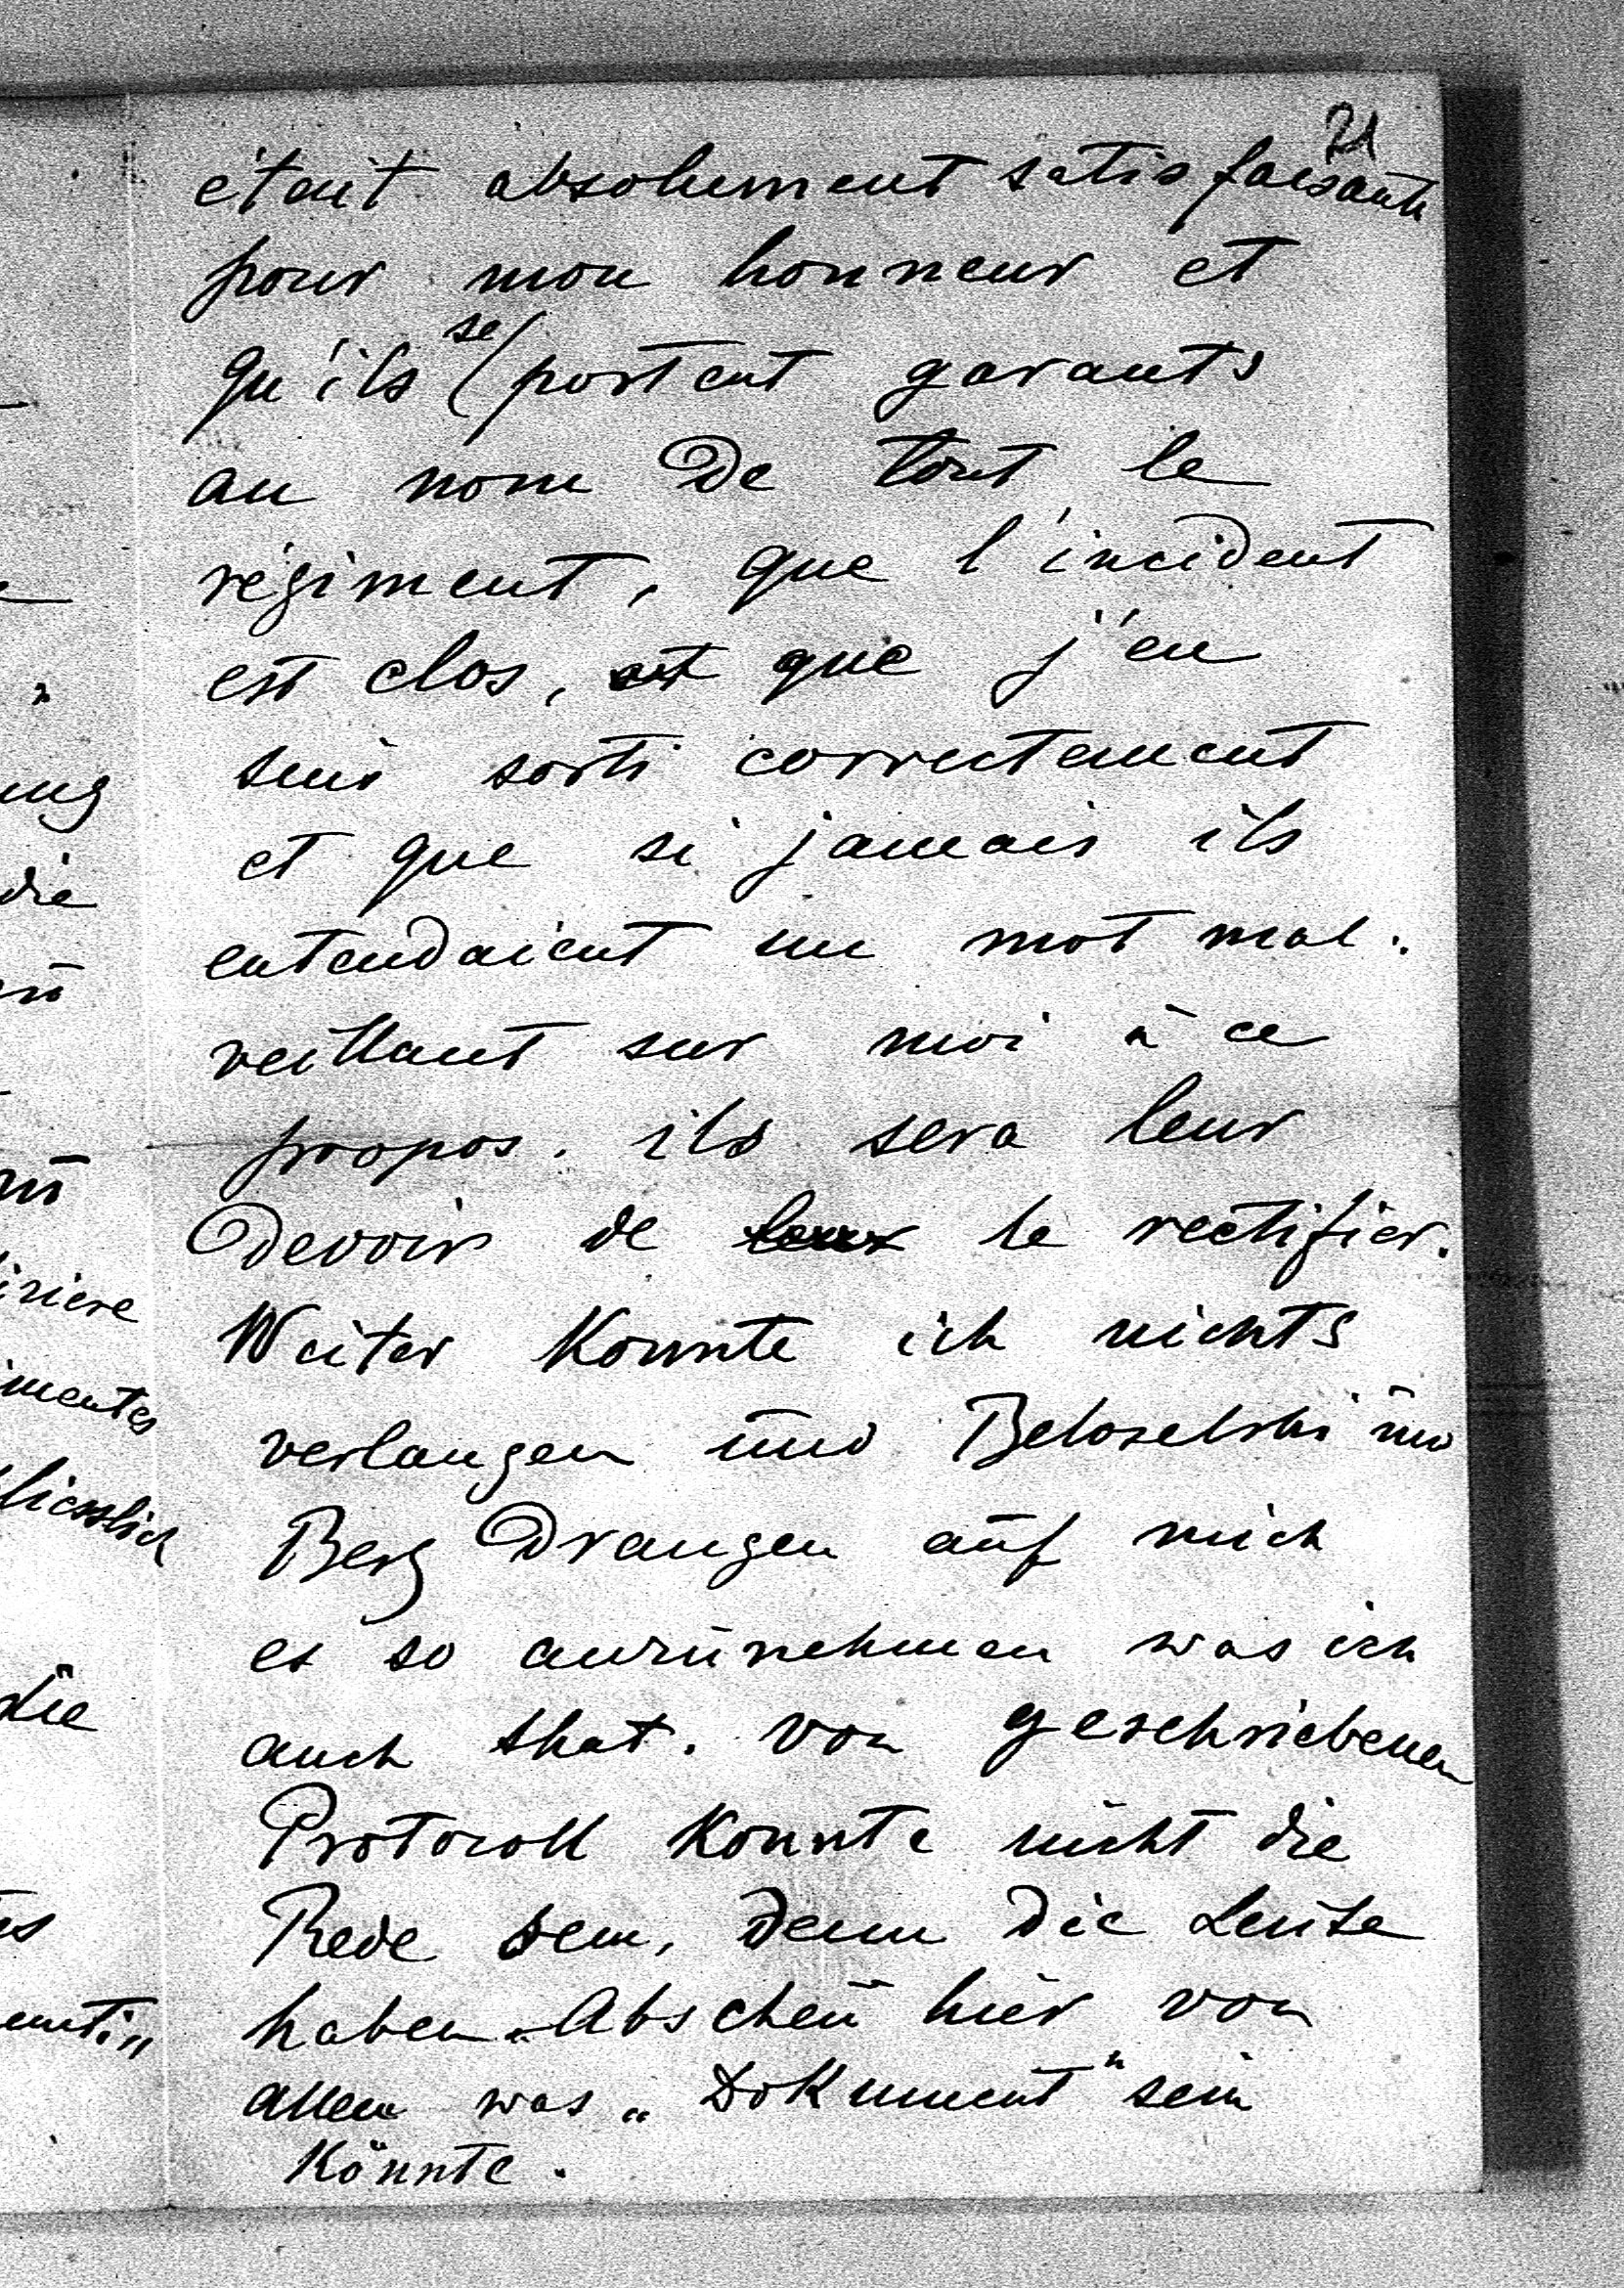 21
était absolument satisfaisante
pour mon honneur et
qu'ils se portent garants
au nom de tout le
régiment, que l'incident
est clos, et que j'en
suis sorti correctement
et que si jamais ils
entendaient un mot mal-
veillant sur moi à ce
propos. ils sera leur
Devoir de leur le rectifier.
Weiter konnte ich nichts
verlangen und Beloselski und
Berg Drangen auf mich
es so anzunehmen was ich
auch that. von geschriebenen
Protocoll konnte nicht die
Rede sein, denn die Leute
haben „Abscheu hier von
allem was „Dokument“ sein
könnte.
ung
die
imentes
die